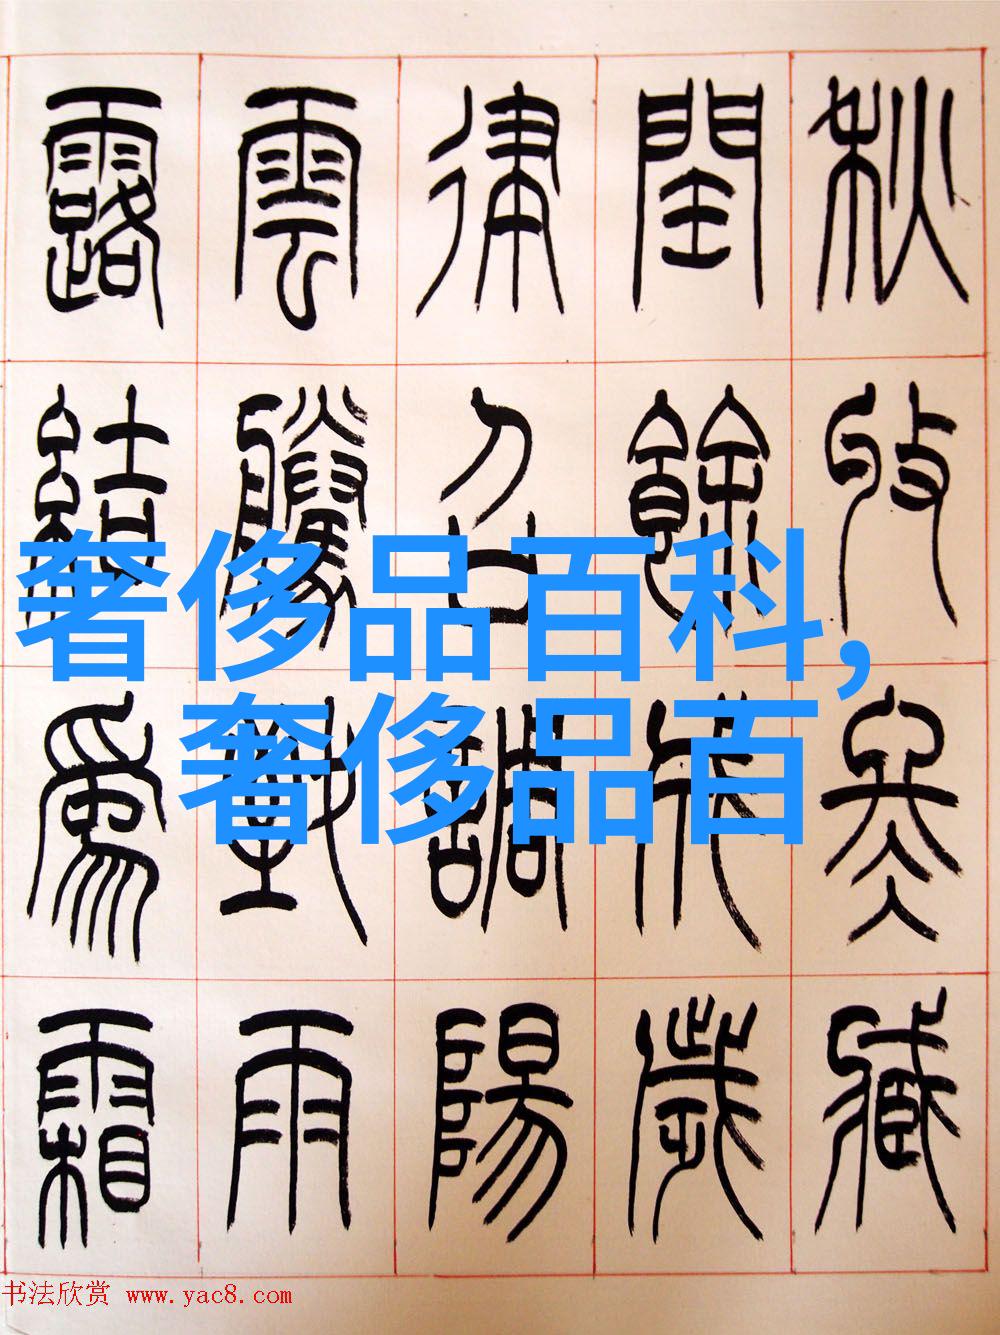 秋收冬臧
閏餘成歲
律召調陽
雲騰致雨
露結爲霜
奢侈品百科,
奢侈品百
书法欣赏 www.yac8.com